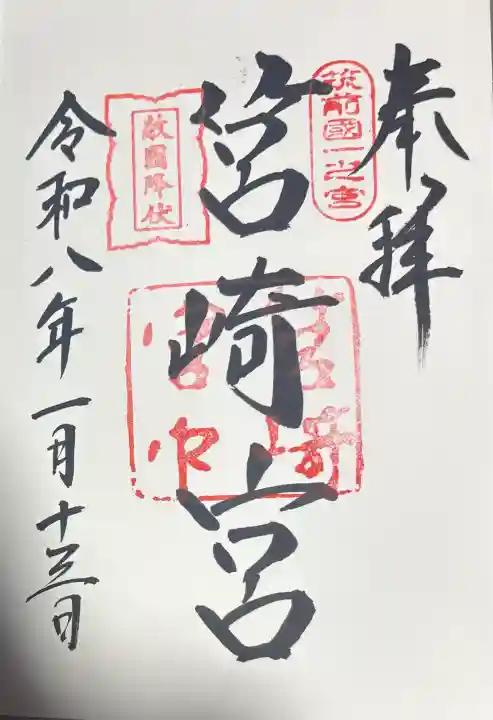 奉拝
筑前國一之宮
筥崎宮
敵國降伏
令和八年一月十三日